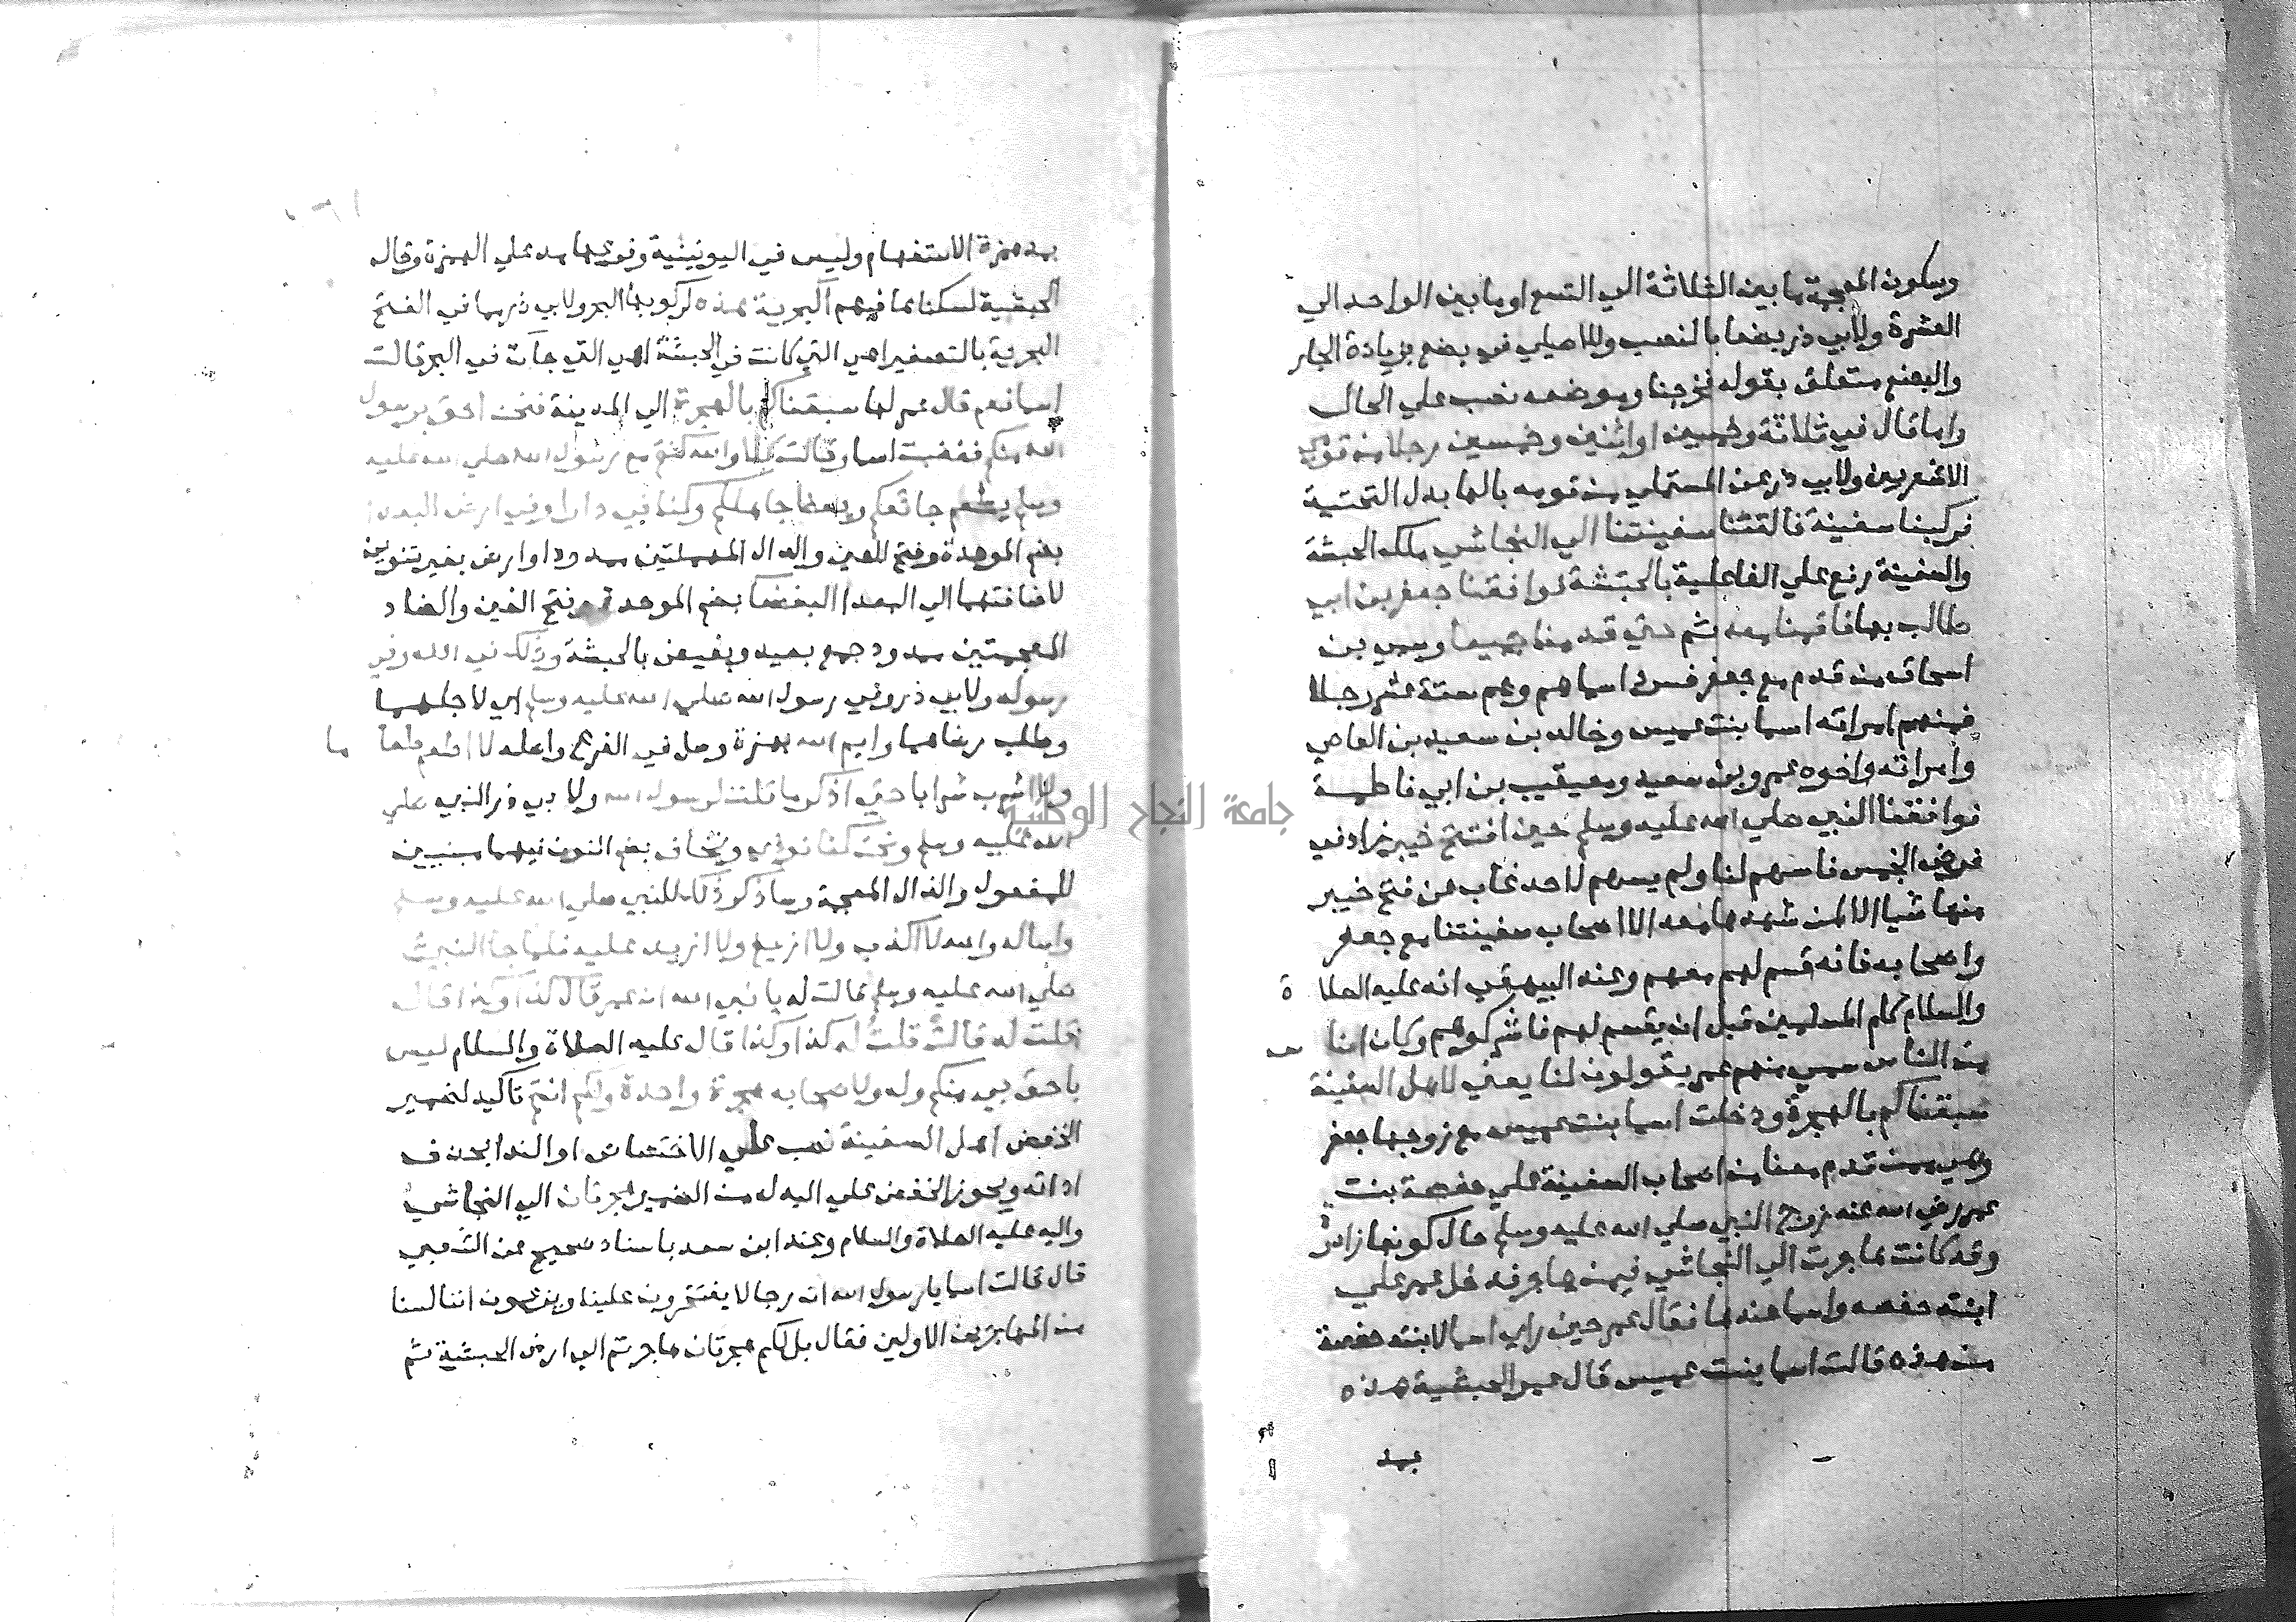 وسكون المعجمة ما بين الثلاثة الي التسع او ما بين الواحد الي
العشرة ولابي ذر بضعا بالنصب وللاصيلي في بضع بزيادة الجار
والبضع متعلق بقوله فخرجنا وموضعه نصب علي الحال
واما قال في ثلاثة وخمسين او اثنين وخمسين رجلا من قومي
الاشعريين ولابي ذر عن المستملي من قومه بالها بدل التحتية
فركبنا سفينة فالقتنا سفينتنا الي النجاشي ملك الحبشة
والسفينة رفع علي الفاعلية بالحبشة فوافقنا جعفر بن ابي
طالب بها فاقمنا معه ثم حتي قدمنا جميعا وسمي بن
اسحاق من قدم مع جعفر فسرد اسماهم وهم ستة عشر رجلا
فمنهم امراته اسما بنت عميس وخالد بن سعيد بن العاصي
وامراته واخوه عمرو بن سعيد ومعيقيب بن ابي فاطمة
فوافقنا النبي صلي الله عليه وسلم حين افتتح خيبر زاد في
فرض الخمس فاسهم لنا ولم يسهم لاحد غاب عن فتح خيبر
منها شيا الا لمن شهد معه الا اصحاب سفينتنا مع جعفر
واصحابه فانه قسم لهم معهم وعند البيهقي انه عليه الصلاة
والسلام كلم المسلمين قبل ان يقسم لهم فاشركوهم وكان اناس
من الناس سمي منهم عمر يقولون لنا يعني لاهل السفينة
سبقناكم بالهجرة ودخلت اسما بنت عميس مع زوجها جعفر
وهي ممن قدم معنا من اصحاب السفينة علي حفصة بنت
عمر رضي الله عنه زوج النبي صلي الله عليه وسلم حال كونها زائرة
وقد كانت هاجرت الي النجاشي فيمن هاجر فدخل عمر علي
ابنته حفصه واسما عندها فقال عمر حين راي اسما لابنته حفصة
من هذه قالت اسما بنت عميس قال عمر الحبشية هذه
بمد
بمد همزة الاستفهام وليس في اليونينية وفرعها مد علي الهمزة وقال
الحبشية لسكناها فيهم البحرية هذه لركوبها البحر ولابي ذر مما في الفتح
البحرية بالتصغير اهي التي كانت في الحبشة اهي التي جات في البحر قالت
اسما نعم قال عمر لها سبقناكم بالهجرة الي المدينة فنحن احق برسول
الله منكم فغضبت اسما وقالت كلا والله كنتم مع رسول الله صلي الله عليه
وسلم يطعم جائعكم ويعظ جاهلكم وكنا في دار او في ارض البعدا
بضم الموحدة وفتح العين والدال المهملتين ممدود او ارض بغير تنوين
لاضافتهما الي البعدا البغضا بضم الموحدة وفتح الغين والضاد
المعجمتين ممدود جمع بعيد وبغيض بالحبشة وذلك في الله وفي
رسوله ولابي ذر وفي رسول الله صلي الله عليه وسلم اي لاجلهما
وطلب رضاهما وايم الله بهمزة وصل في الفرع واصله لا اطعم طعاما
ولا اشرب شرابا حتي اذكر ما قلت لرسول الله ولابي ذر النبي صلي
الله عليه وسلم ونحن كنا نوذي ونخاف بضم النون فيهما مبنيين
للمفعول والذال المعجمة وساذكر ذلك للنبي صلي الله عليه وسلم
واساله والله لا اكذب ولا ازيغ ولا ازيد عليه فلما جا النبي
صلي الله عليه وسلم قالت له يا نبي الله ان عمر قال كذا وكذا قال
قلت له قالت قلت له كذا وكذا قال عليه الصلاة والسلام ليس
باحق بي منكم وله ولاصحابه هجرة واحدة ولكم انتم تاكيد لضمير
الخفض اهل السفينة نصب علي الاختصاص او الندا بحذف
اداته ويجوز الخفض علي البدل من الضمير هجرتان الي النجاشي
واليه عليه الصلاة والسلام وعند ابن سعد باسناد صحيح عن الشعبي
قال قالت اسما يا رسول الله ان رجالا يفتخرون علينا ويزعمون اننا لسنا
من المهاجرين الاولين فقال بل لكم هجرتان هاجرتم الي ارض الحبشية ثم
جامعة النجاح الوطنية